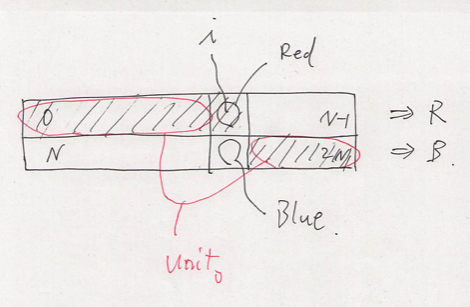 i
Red
0
N-1
⇒ R
N
⇒ B.
Blue.
Unit₀